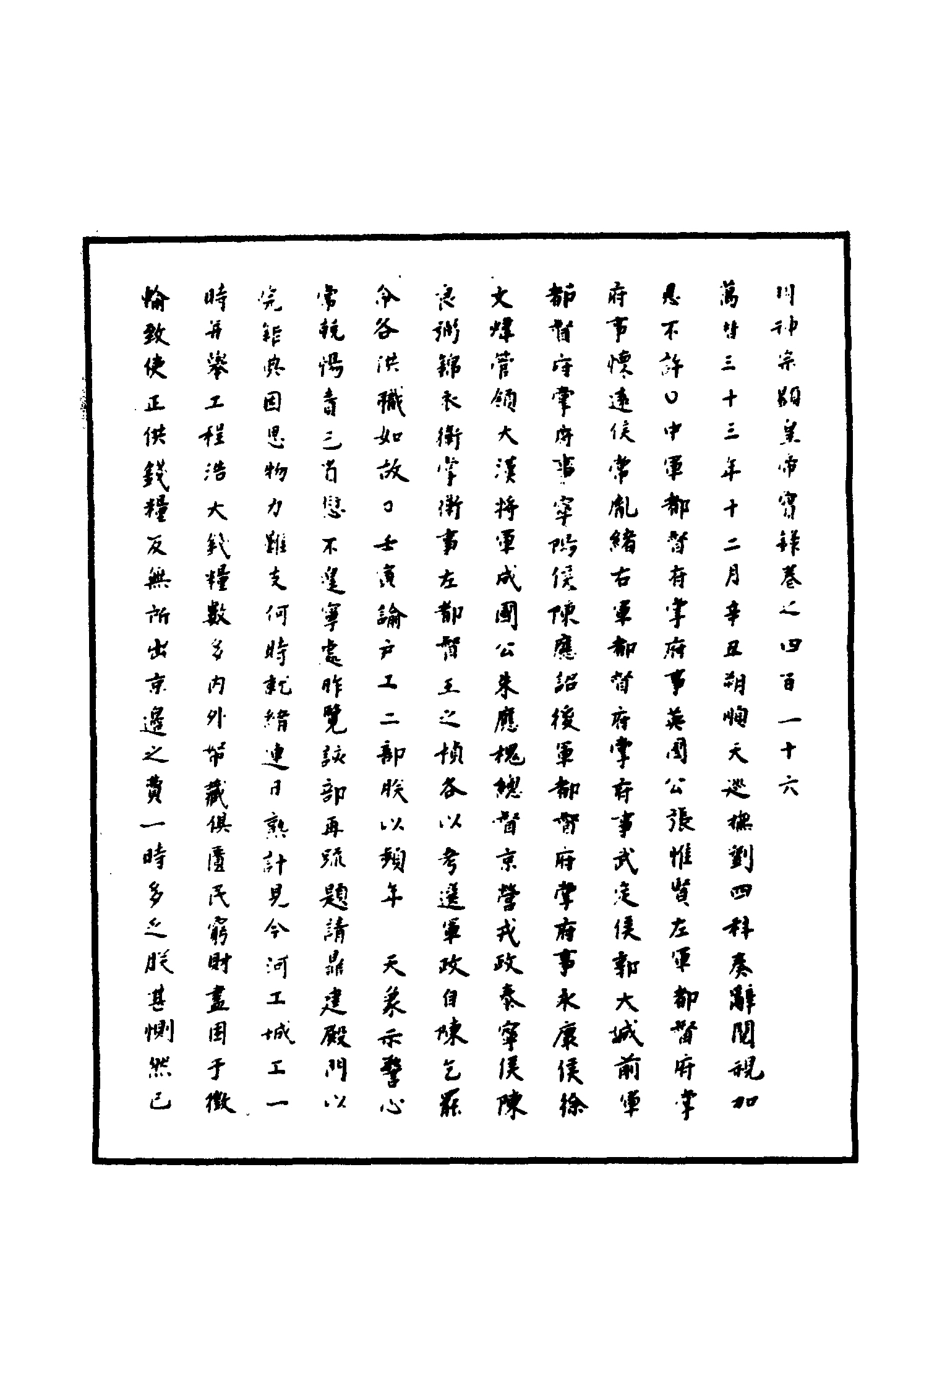 明神宗顯皇帝實錄卷之四百一十六
萬曆三十三年十二月辛丑朔順天巡撫劉四科奏辭閱視加
恩不許○中軍都督府掌府事英國公張惟賢左軍都督府掌
府事懷遠侯常胤緒右軍都督府掌府事武定侯郭大誠前軍
都督府掌府事寧陽侯陳應詔後軍都督府掌府事永康侯徐
文煒管領大漢將軍成國公朱應槐總督京營戎政泰寧侯陳
良弼錦衣衛掌衛事左都督王之楨各以考選軍政自陳乞罷
令各供職如故○壬寅諭戶工二部朕以頻年 天象示警心
常兢惕音三省愆不遑寧處昨覽該部再疏題請鼎建殿門以
完鉅典因思物力難支何時就緒連日熟計見今河工城工一
時并舉工程浩大錢糧數多內外帑藏俱匱民窮財盡困于徵
輸致使正供錢糧反無所出京邊之費一時多乏朕甚惻然已